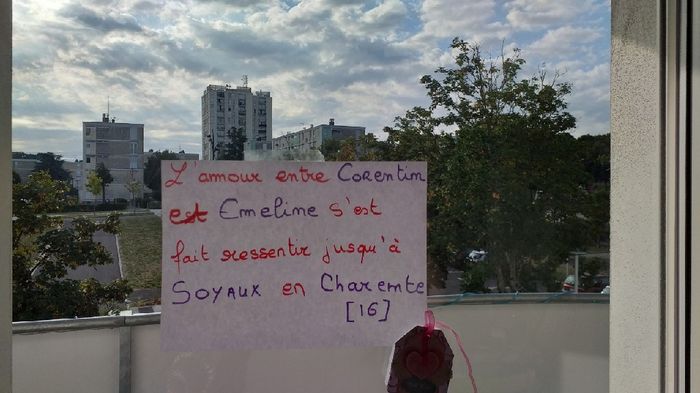 L'amour entre Corentin
est Emeline s'est
fait ressentir jusqu'à
SOYAUX en Charente
[16]